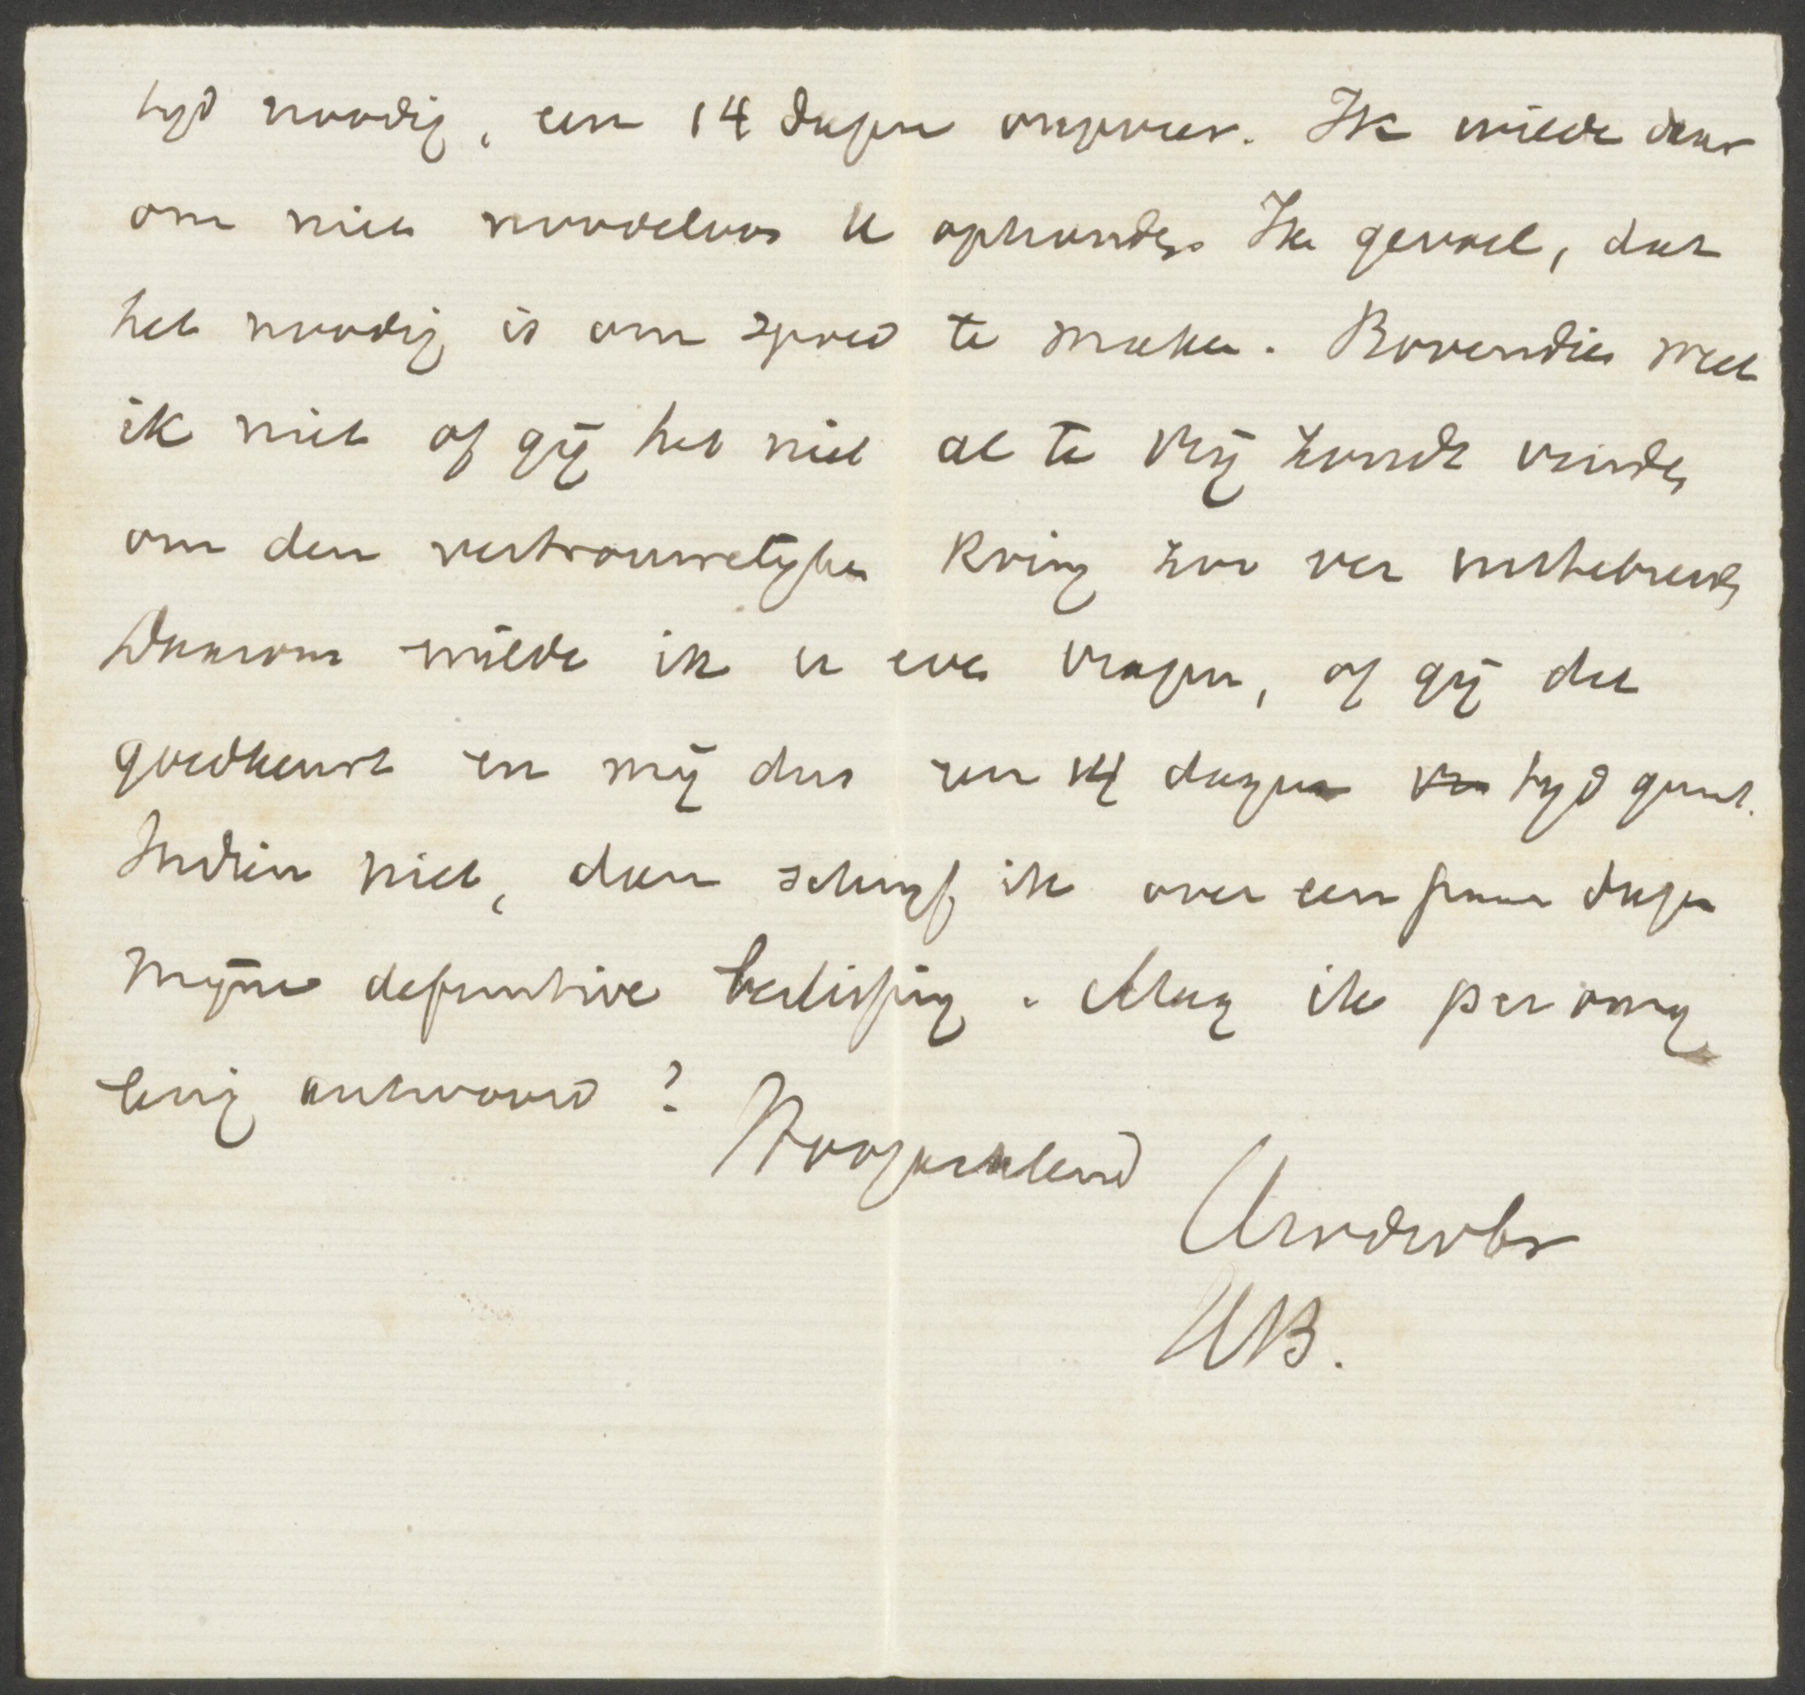 tijd noodig, een 14 dagen ongeveer. Ik wilde daar
om niet noodeloos U ophouden. Ik gevoel, dat
het noodig is om spoed te maken. Bovendien weet
ik niet of gij het niet al te vrij zoudt vinden
om den vertrouwelijken kring zoo ver uittebreiden
Daarom wilde ik u even vragen, of gij dit
goedkeurt en mij dus een 14 dagen tijd gunt.
Indien niet, dan schrijf ik over een paar dagen
mijne definitive beslissing. Mag ik per omg
beurig antwoord?
Hoogachtend
UwdwDr
HPB.